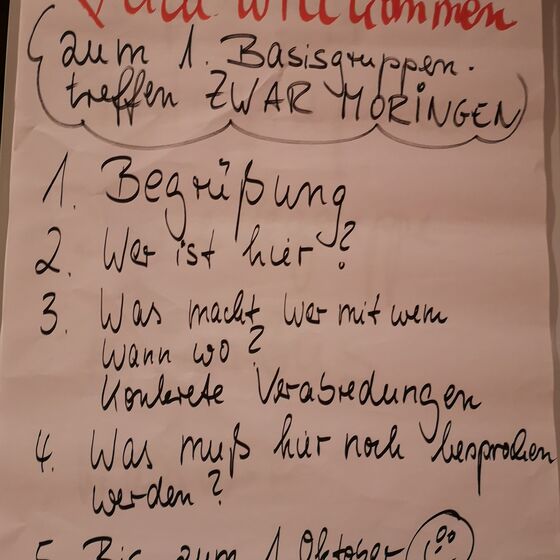 Herzlich willkommen
zum 1. Basisgruppen-
treffen ZWAR MORINGEN
1. Begrüßung
2. Wer ist hier?
3. Was macht wer mit wem
wann wo?
Konkrete Verabredungen
4. Was muß hier noch besprochen
werden?
5. Bis zum 1. Oktober